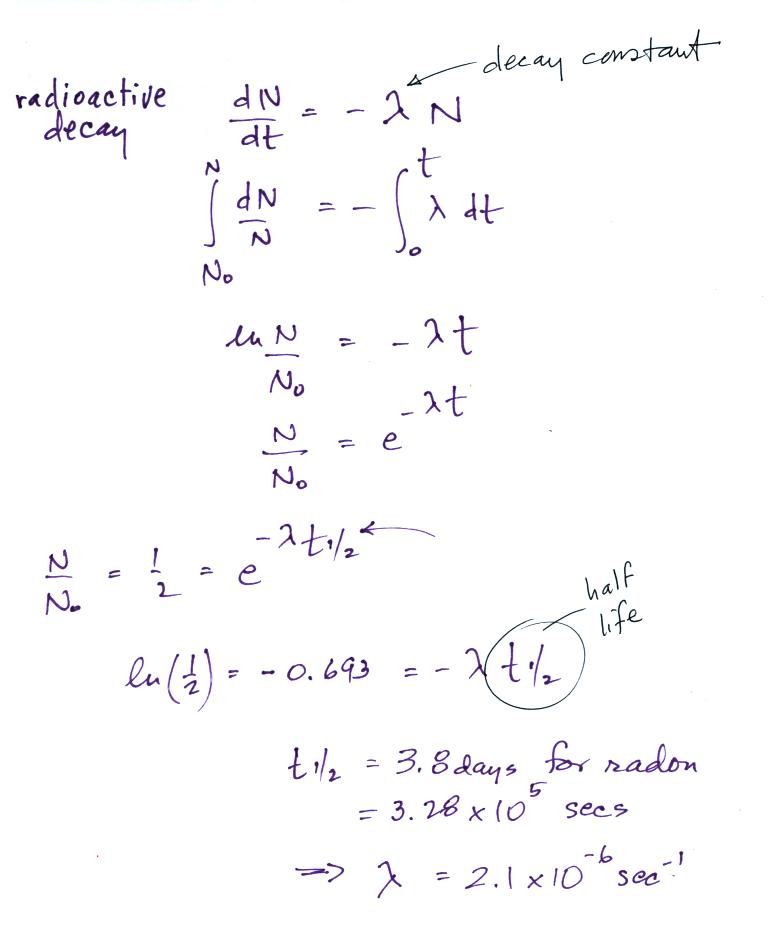 decay constant
radioactive decay dN/dt = - λ N
∫_{N₀}^{N} dN/N = - ∫_{0}^{t} λ dt
ln N/N₀ = - λt
N/N₀ = e^{-λt}
N/N₀ = 1/2 = e^{-λ t1/2}
half life
ln(1/2) = - 0.693 = - λ t1/2
t1/2 = 3.8 days for radon
= 3.28 × 10⁵ secs
⇒ λ = 2.1 × 10⁻⁶ sec⁻¹